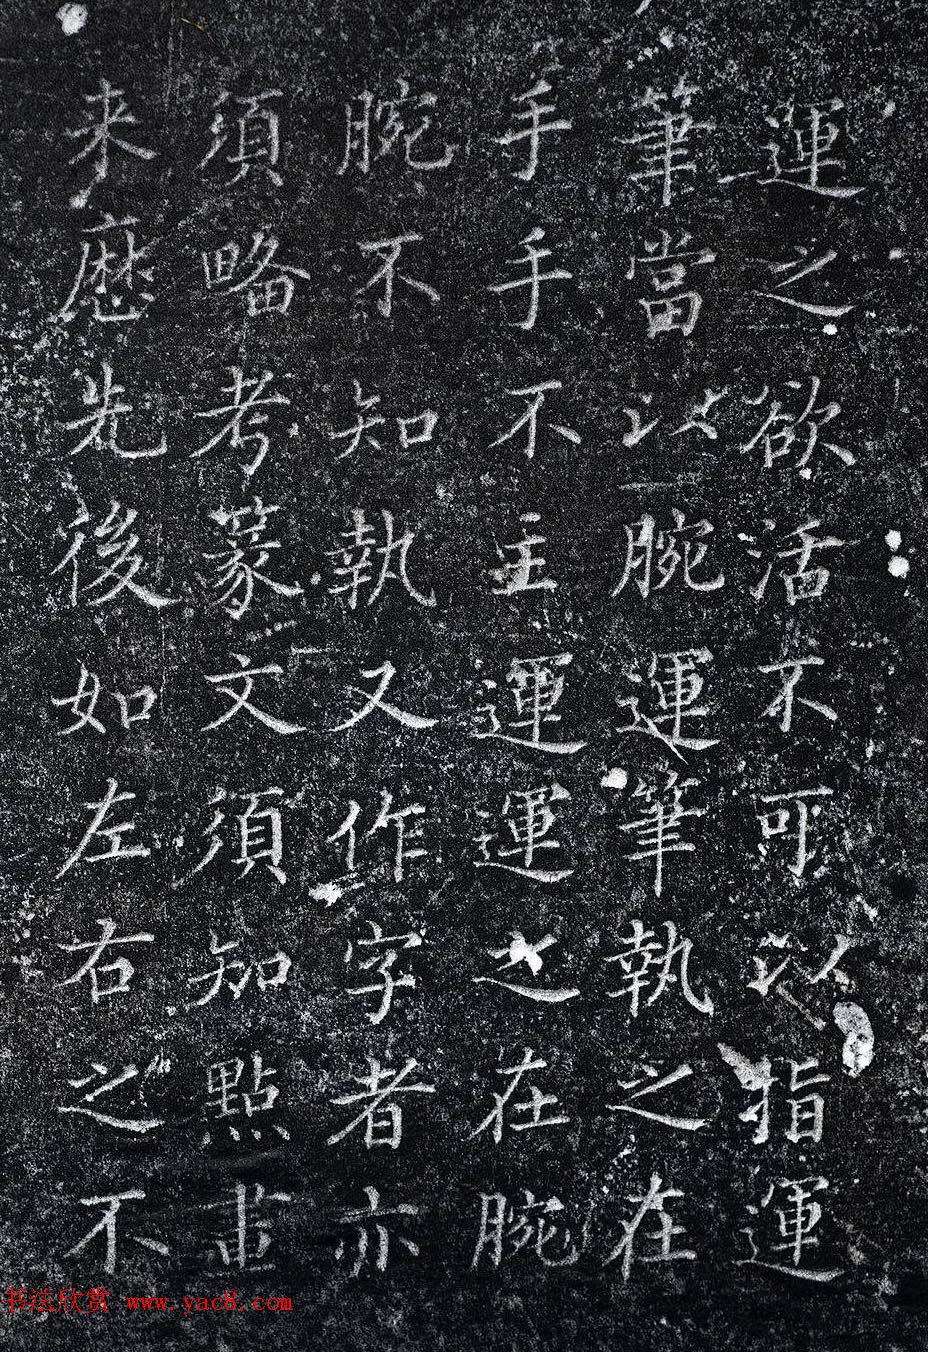 運之欲活不可以指運
筆當以腕運筆執之在
手手不主運運之在腕
腕不知執又作字者亦
須略考篆文須知點畫
来歷先後如左右之不
书法欣赏 www.yac8.com